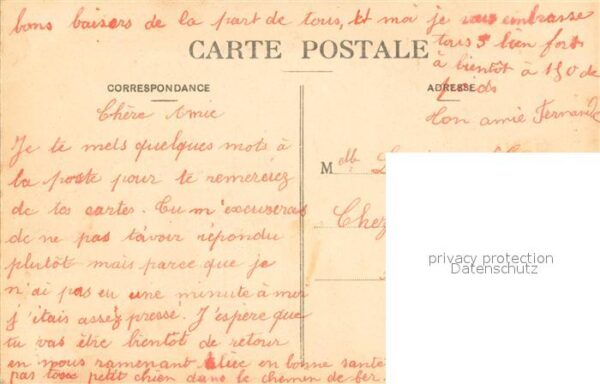 bons baisers de la part de tous, Et moi je vous embrasse
CARTE POSTALE
tous 5 bien fort
à bientôt à 150 de
poids
CORRESPONDANCE
ADRESSE
Ton amie Fernand
Chère Amie
Je te mets quelques mots à
la poste pour te remerciez
de tes cartes. Tu m'excuseras
de ne pas t'avoir répondu
plutôt mais parce que je
n'ai pas eu une minute à moi
j'étais assez pressé. J'espère que
tu vas être bientôt de retour
en nous ramenant Alice en bonne santé
pas petit chien dans le chemin de fer.
Mdlle
Chez
privacy protection
Datenschutz